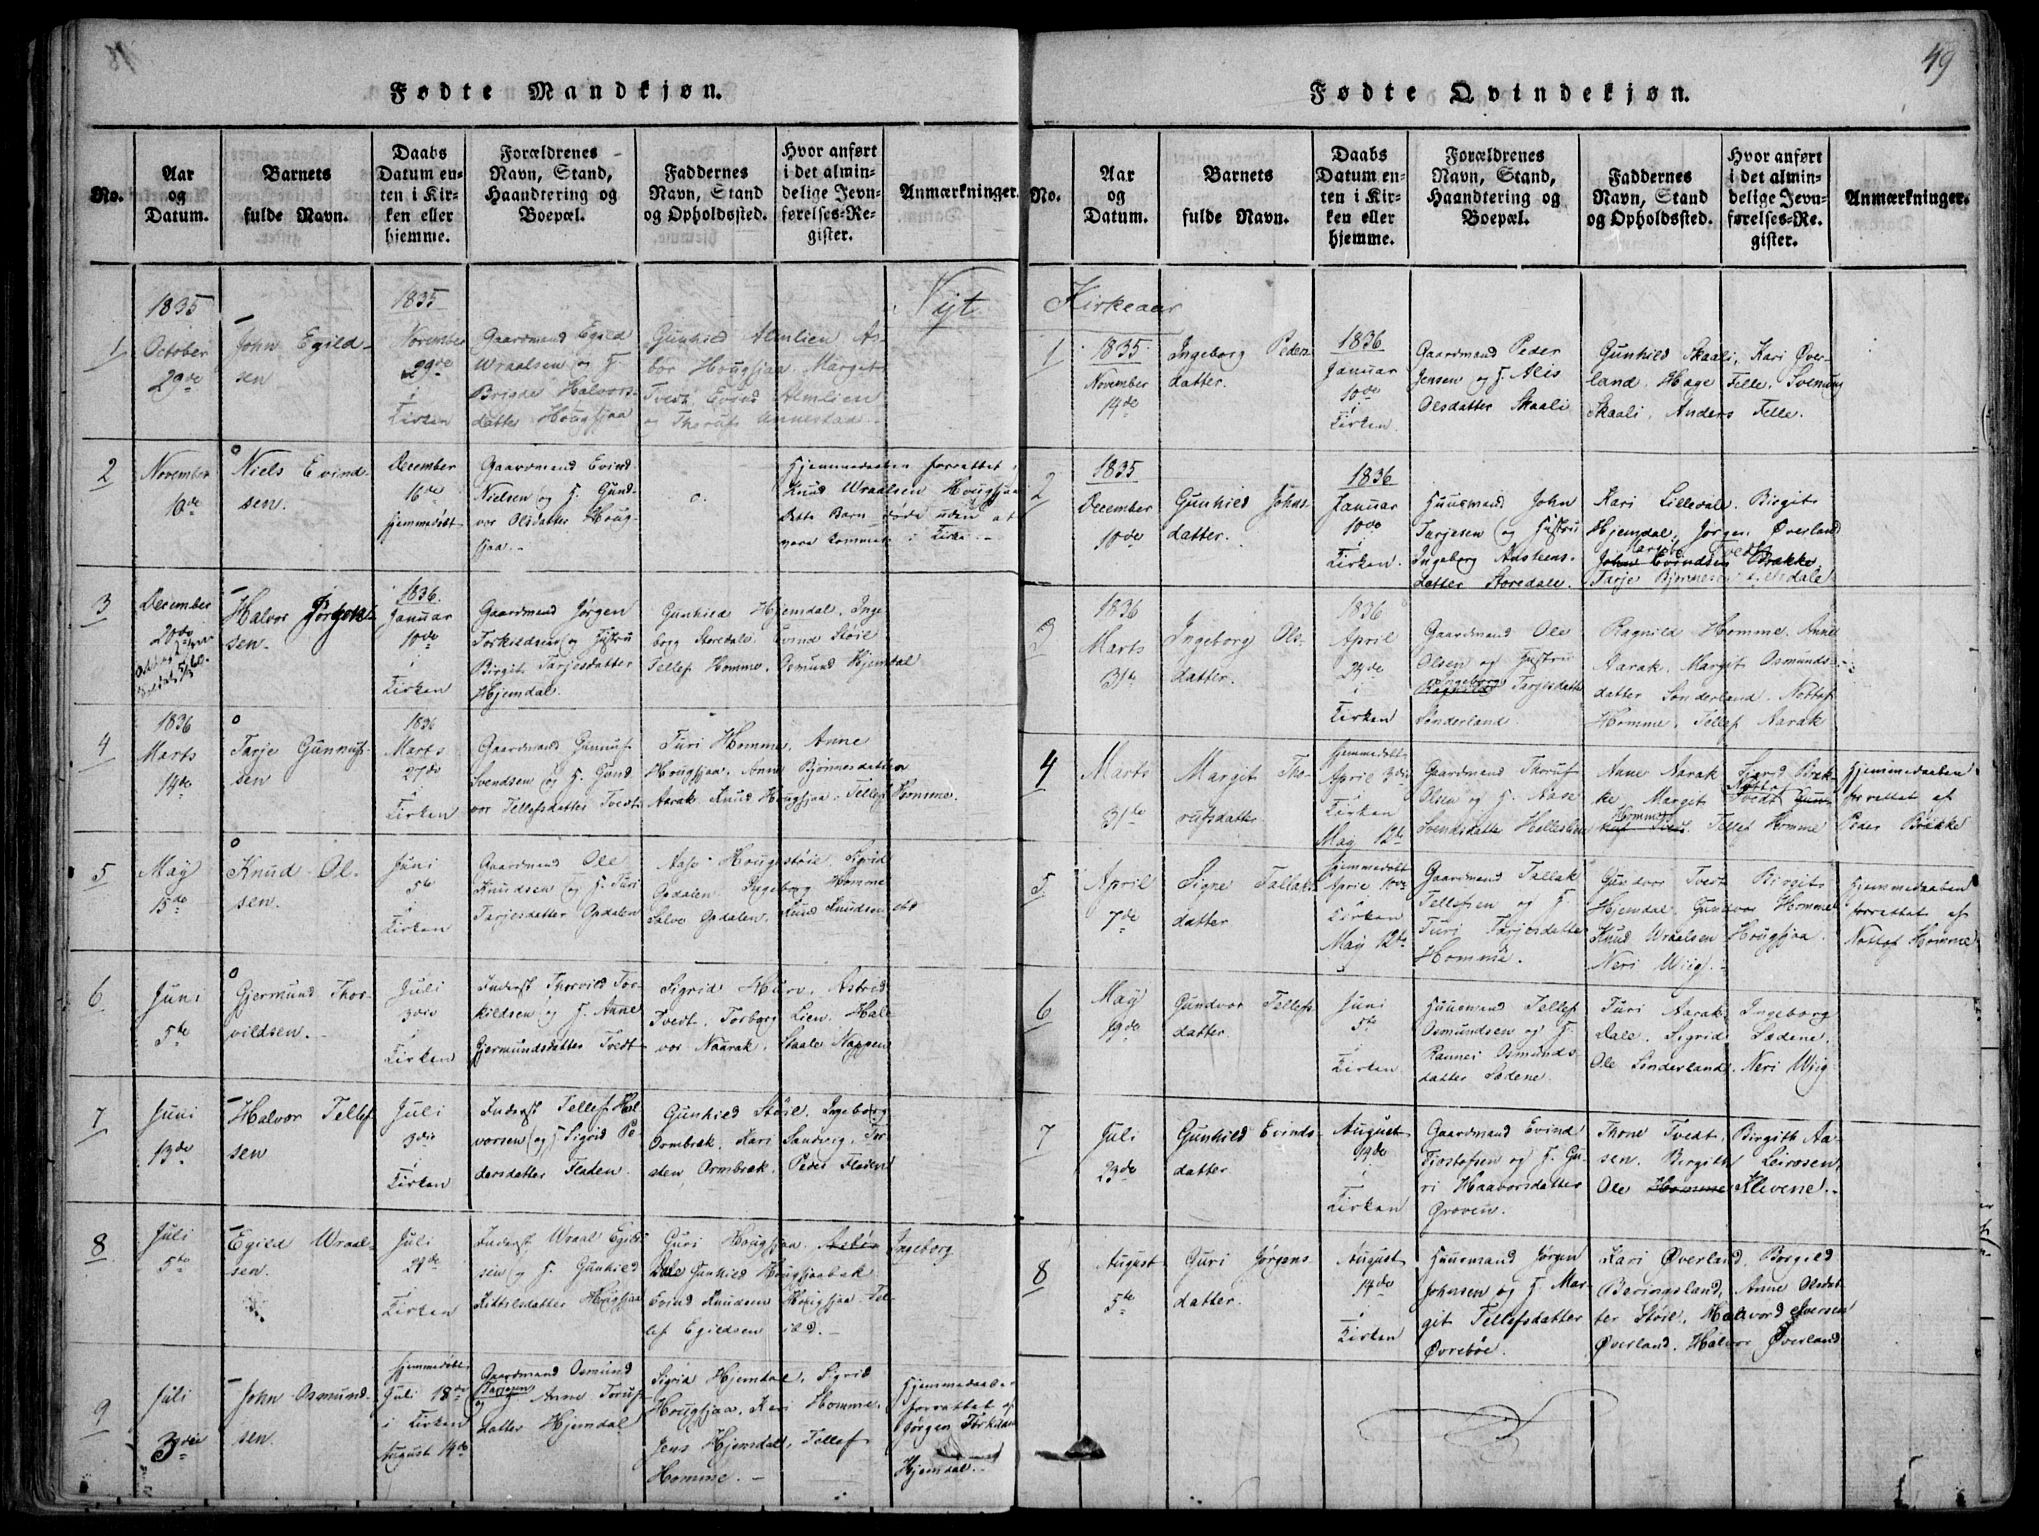 Fødte Mandkjøn.
No.
Aar
og
Datum.
Barnets
fulde Navn.
Daabs
Datum en-
ten i Kir-
ken eller
hjemme.
Forældrenes
Navn, Stand,
Haandtering og
Boepæl.
Faddernes
Navn, Stand
og Opholdssted.
Hvor anført
i det almin-
delige Jevn-
førelses-Re-
gister.
Anmærkninger.
Nyt
1
1835
October
29de
John Egild-
sen
1835
November
29de
i
Kirken
Gaardmand Egild
Wraalsen og H.
Halvors-
datter Hougsjaa
Gunhild Almlien As-
bor Hougsjaa. Margit
Tvedt, Evind Almlien
og Thoruf
2
November
10de
Niels Evind-
sen.
December
16de
hjemmedøbt
Gaardmand Evind
Nielsen og H. Gund-
vor Olsdatter Houg-
sjaa.
Hjemmedaaben forrettet
Knud Wraalsen Hougsjaa
Dette Barn døde uden at
være kommet i Kirke.
3
December
20de
Halvor Jørgen-
sen.
1836
Januar
10de
i
Kirken
Gaardmand Jørgen
Torkildsen og Hustru
Birgit Tarjesdatter
Hjemdal.
Gunhild Hjemdal, Inge-
borg Storedale. Evind Støil
Tellef Homme. Osmund Hjemdal
4
1836
Marts
14de
Tarje Gunnuf-
sen
1836
Marts
27de
i
Kirken
Gaardmand Gunnuf
Svendsen og H. Gund-
vor Tellefsdatter Tvedt
Turi Homme. Anne
Hougsjaa. Anne Bjørnesdatter
Aarak Knud Hougsjaa. Tellef Homme.
5
May
15de
Knud Ol-
sen.
Juni
5te
i
Kirken
Gaardmand Ole
Knudsen og H. Turi
Tarjesdatter Opdalen
Aase Hougestøil. Sigrid
Opdalen. Ingeborg Homme
Salve Opdalen. Knud Knudsen ibd
6
Juni
5te
Gjermund Thor-
vildsen.
Juli
3die
i
Kirken
Inderst Thorvild Tor-
kildsen og H. Anne
Gjermundsdatter Tvedt
Sigrid Hurv. Astrid
Tvedt. Torborg Lien. Hal-
vor Naarak. Staale Nappen
7
Juni
13de
Halvor Tellef-
sen
Juli
3die
i
Kirken
Inderst Tellef Hal-
vorsen og H. Sigrid Pe-
dersdatter Fladen.
Gunhild Støil. Ingeborg
Ormbrak. Kari Sandvig. Tor-
sden Ormbrak. Peder Fladen
8
Juli
5te
Egild Wraal-
sen.
Juli
i
Kirken
Inderst Wraal Egild-
sen og H. Gunhild
Kittilsdatter Hougsjaa
Guri Hougsjaa. Ingeborg
Dale Gunhild Hougsjaabak
Evind Knudsen Hougsjaa. Tel-
lef Egildsen ibd.
9
Juli
3die
John Osmund-
sen.
hjemmedøbt
Juli 18de
i Kirken
August 14de
Gaardmand Osmund
Tarjesen
og H. Anne Toruf-
datter Hjemdal
Sigrid Hjemdal, Sigrid
Hougsjaa. Kari Homme.
Jens Hjemdal, Tellef
Homme.
Hjemmedaaben
forrettet af
Jørgen Torkildsen
Hjemdal.
49
Fødte Qvindekjøn.
No.
Aar
og
Datum.
Barnets
fulde Navn.
Daabs
Datum en-
ten i Kir-
ken eller
hjemme.
Forældrenes
Navn, Stand,
Haandtering og
Boepæl.
Faddernes
Navn, Stand
og Opholdssted.
Hvor anført
i det almin-
delige Jevn-
førelses-Re-
gister.
Anmærkninger.
Kirkeaar
1
1835
November
14de
Ingeborg Peders-
datter.
1836
Januar
10de
i
Kirken.
Gaardmand Peder
Jensen og H. Alis
Olsdatter Skaali
Gunhild Skaali, Kari Øver-
land. Hage Felle. Svenung
Skaali, Anders Felle.
2
1835
December
10de
Gunhild Johns-
datter.
1836
Januar
10de
i
Kirken.
Huusmand John
Tarjesen og Hustru
Ingeborg Anstens-
datter Storedale.
Kari Lilledale. Birgit
Hjemdal, Jørgen Øverland
Tvedt
John Evindsen Brække.
Tarje Bjørnesen
3
1836
Marts
31te
Ingeborg Ols-
datter.
1836
April
i
Kirken
Gaardmand Ole
Olsen og Hustru
Ingeborg
Tarjesdatter
Sønderland.
Ragnild Homme. Anne
Aarak. Margit Osmunds-
datter Sønderland. Nottof
Homme, Tellef Aarak
4
Marts
31te
Margit Tho-
rufsdatter
hjemmedøbt
April 3die
i
Kirken
May 12te
Gaardmand Thoruf
Olsen og H. Aase
Svendsdatter Helleslien
Anne Aarak Sigrid Bræk-
ke Margit Tvedt
Homme
Tellef Homme
Hjemmedaaben
forrettet af
Peder Brække
5
April
7de
Signe Tallaks-
datter
hjemmedøbt
April 10de
i
Kirken
May 12te
Gaardmand Tallak
Tellefsen og H.
Turi Tarjesdatter
Homme.
Gundvor Tvedt Birgit
Hjemdal, Gundvor Homme
Knud Wraalsen Hougsjaa.
Neri Wiig.
Hjemmedaaben
forrettet af
Nottof Homme
6
May
19de
Gundvor Tellefs-
datter.
Juni
5te
i
Kirken
Huusmand Tellef
Osmundsen og H.
Rannei Osmunds-
datter Lødene
Turi Aarak, Ingeborg
Dale. Sigrid Lødene.
Ole Sønderland. Neri Wiig
7
Juli
23de
Gunhild Evinds-
datter.
August
14de
i
Kirken
Gaardmand Evind
Tjostofsen og H. Gu-
ri Haavorsdatter
Groven.
Thone Tvedt, Birgith Aa-
sen. Birgith Leirosen,
Ole Homme Klevene.
8
August
5te
Guri Jørgens-
datter.
August
14de
i
Kirken
Huusmand Jørgen
Johnsen og H. Mar-
git Tellefsdatter
Øvrebøe.
Kari Øverland, Borgild
Beringsland, Anne Olsdat-
ter Støil, Halvord Iversen
Øverland. Halvor Øverland